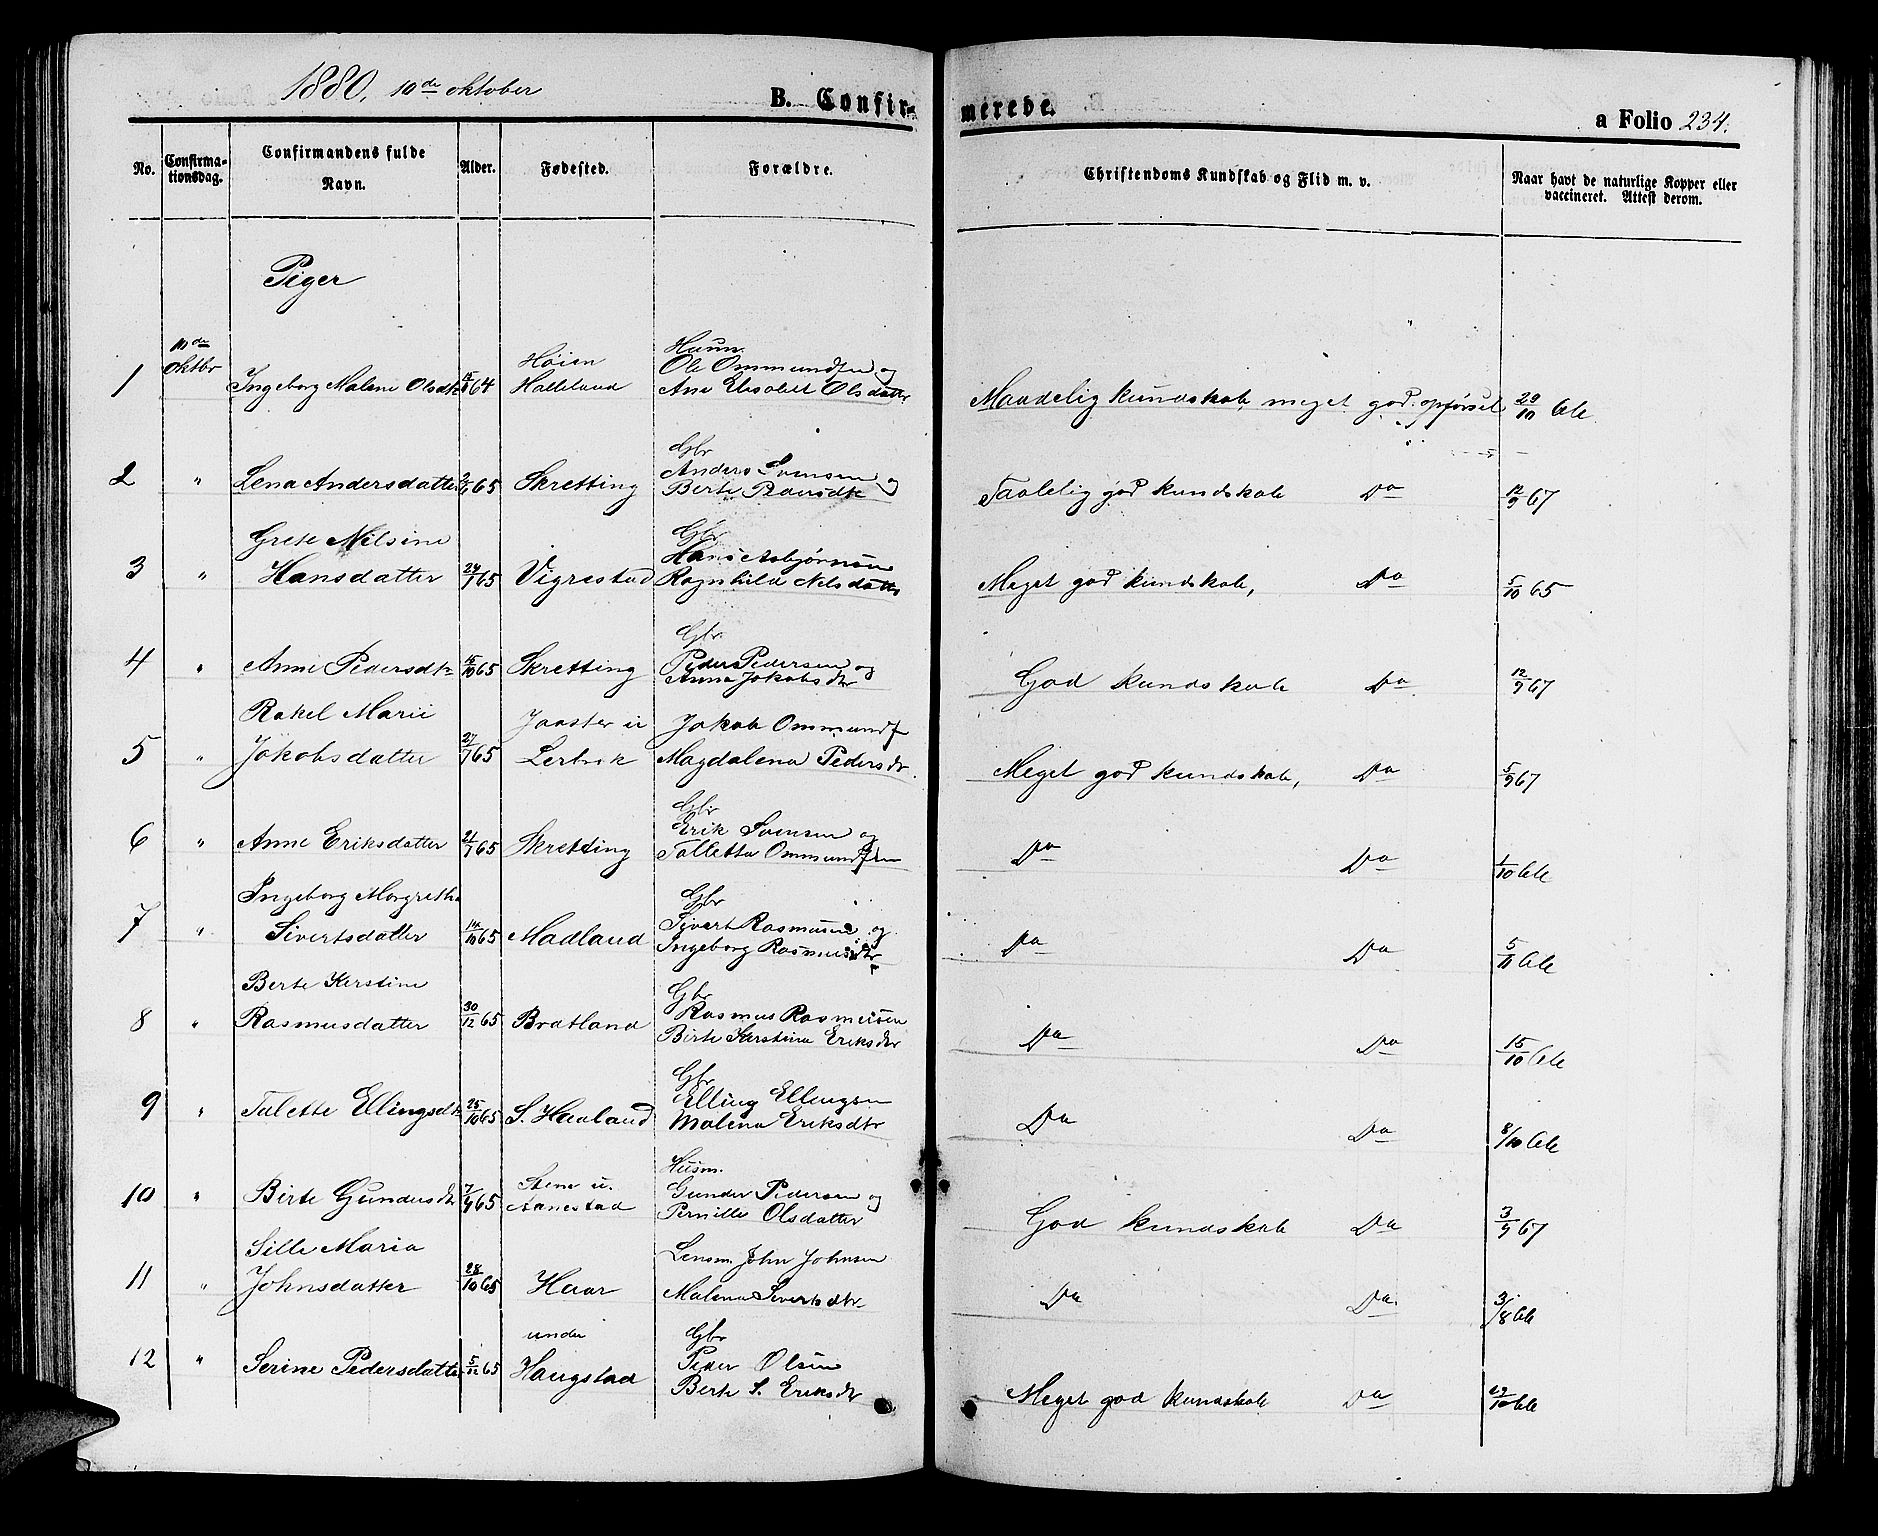 1880. 10de oktober
B. Confirmerede.
a Folio 234.
No.
Confirmationsdag.
Confirmandens fulde Navn.
Alder.
Fødested.
Forældre.
Christendoms Kundskab og Flid m. v.
Naar havt de naturlige Kopper eller vaccineret. Attest derom.
Piger
10de Høien Husm.
oktbr Ole Ommundsen og
1 Ingeborg Malene Olsdtr 64 Halleland Ane Elisabet Olsdatter Maadelig kundskab, meget god opførsel 29/10 66
Gbr
Anders Svensen og
2 " Lena Andersdatter 65 Skretting Berte Pedersdtr Taalelig god kundskab Do 12/9 67
Grete Nilsine Gbr
Hans Asbjørnsen
3 " Hansdatter 24/1 65 Vigrestad Ragnhild Nilsdatter Meget god kundskab, Do 5/10 65
Gbr.
Peder Pedersen og
4 " Anne Pedersdtr 15/10 65 Skretting Anna Jakobsdtr God kundskab Do 12/9 67
Rakel Marie Jakob Ommundf
5 " Jakobsdatter 27/7 65 Lerbrek Magdalena Pedersdr. Meget god kundskab, Do 5/9 67
Gbr
Erik Svensen og
6 " Anne Eriksdatter 21/7 65 Skretting Talletta Ommundsen Do Do 1/10 66
Ingeborg Margretha Gbr
Sivert Rasmusen og
7 " Sivertsdatter 14/10 65 Madland Ingeborg Rasmusdtr Do Do 5/11 66
Berte Kerstine Gbr
Rasmus Rasmusen
8 " Rasmusdatter 30/12 65 Bratland Birte Kerstina Eriksdtr Do Do 15/10 66
Gbr
Elling Ellingsen
9 " Talette Ellingsdtr 25/10 65 S. Haaland Malena Eriksdtr Do Do 8/10 66
Stene u. Husm.
Gunder Pedersen og
10 " Birte Gundersdtr 7/9 65 Aanestad Pernille Olsdatter God kundskab Do 3/9 67
Sille Maria Lensm. John Johnsen
11 " Johnsdatter 28/10 65 Haar Malena Sivertsdtr Do Do 3/8 66
under Gbr
Peder Olsen
12 " Serine Pedersdatter 5/12 65 Haugstad Berte S. Eriksdtr Meget god kundskab Do 29/10 66